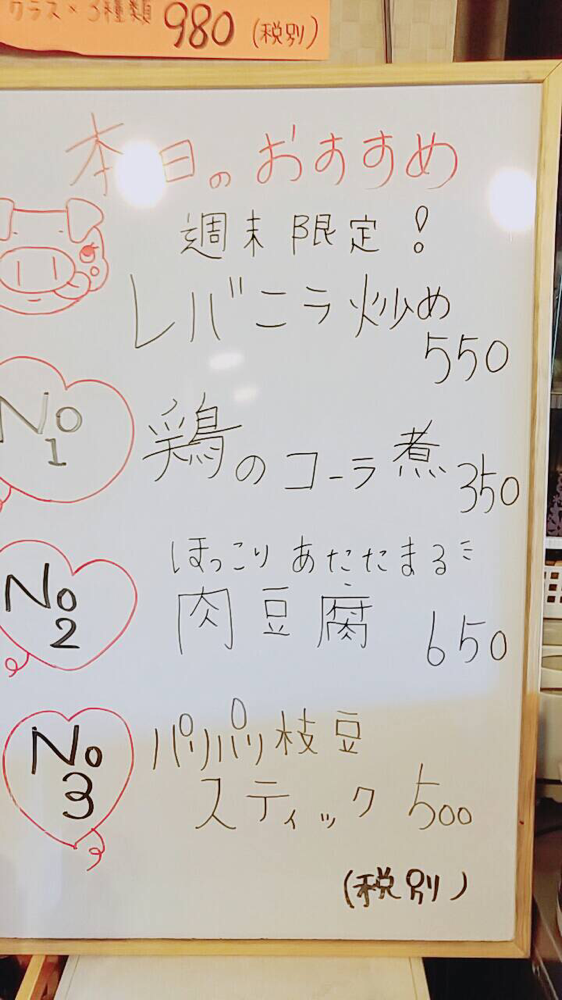 グラス×3種類 980 (税別)
本日のおすすめ
週末限定!
レバニラ炒め
550
No 1
鶏のコーラ煮 350
ほっこりあたたまる
No 2
肉豆腐 650
No 3
パリパリ枝豆
スティック 500
(税別)